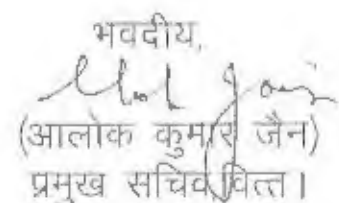 भवदीय,
(आलोक कुमार जैन)
प्रमुख सचिव वित्त।